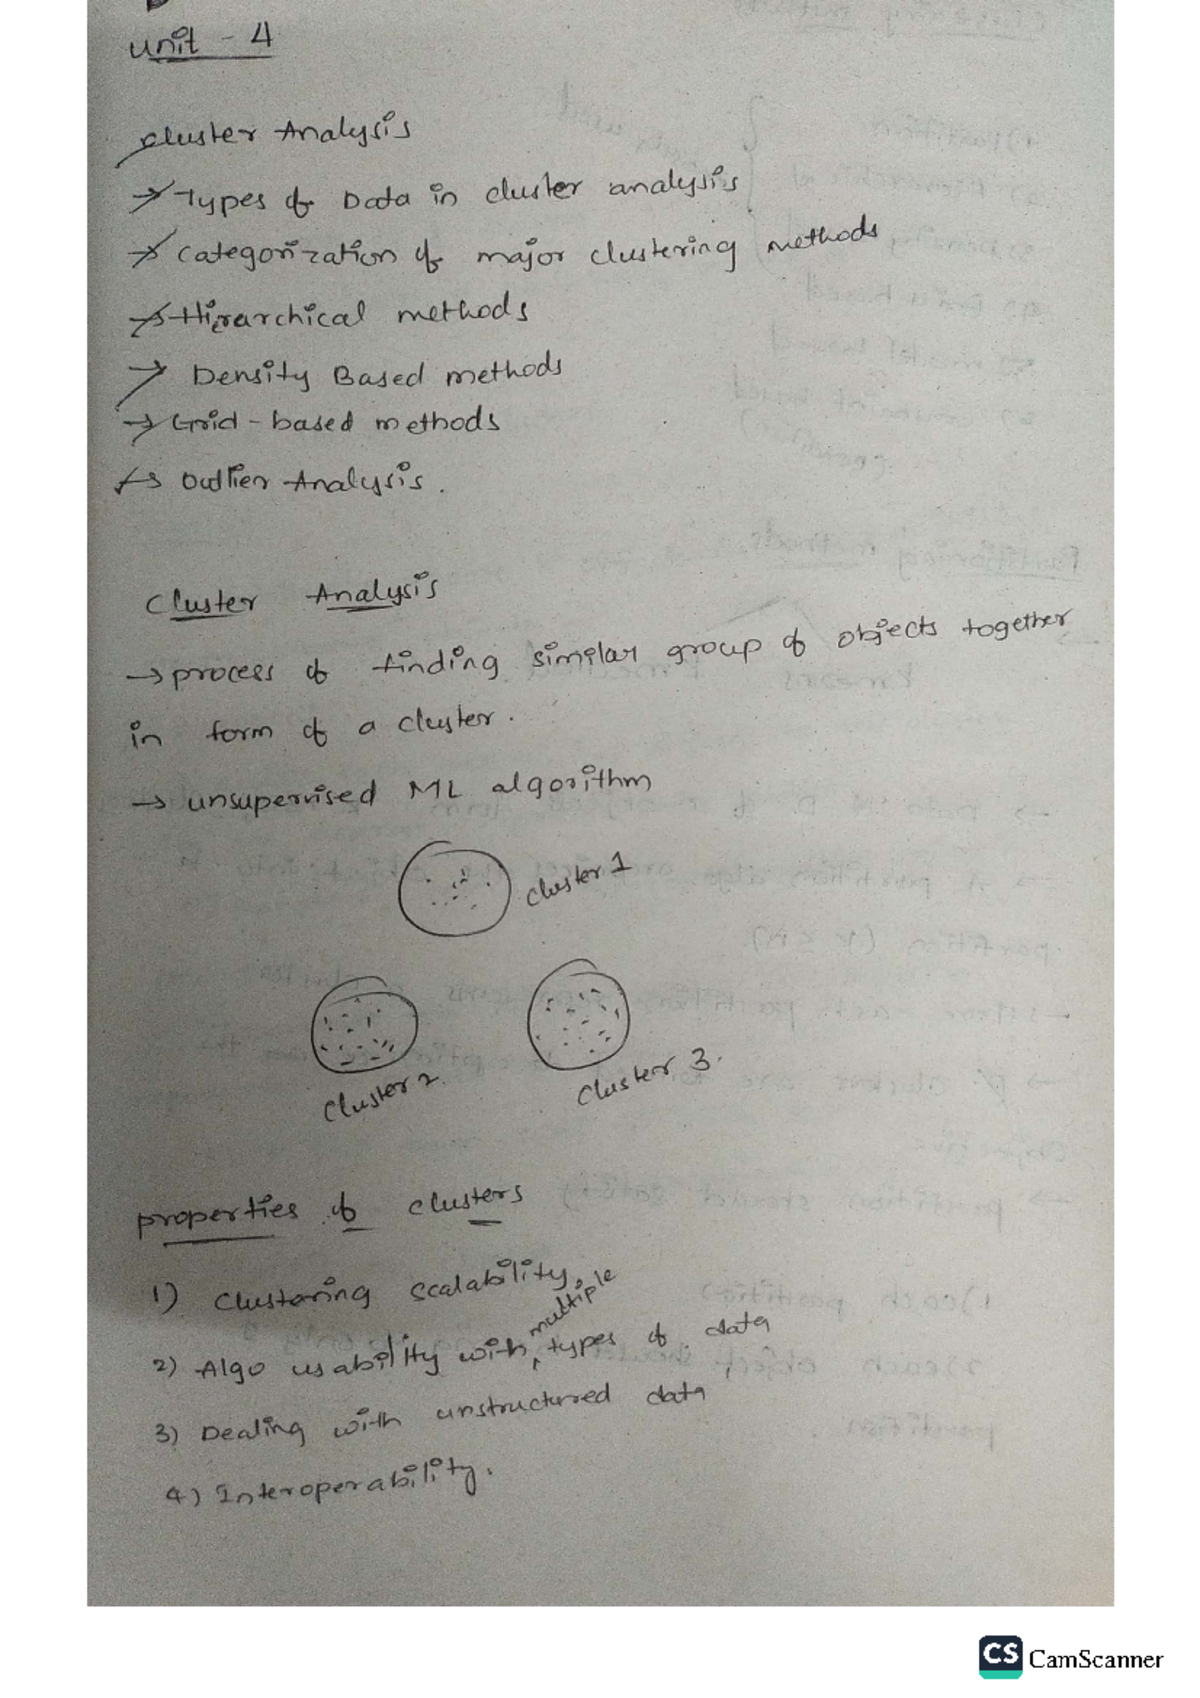 Unit - 4
Cluster Analysis
→ Types of Data in cluster analysis
→ Categorization of major clustering methods
→ Hierarchical methods
→ Density Based methods
→ Grid - based methods
→ Outlier Analysis.
Cluster Analysis
→ process of finding similar group of objects together
in form of a cluster.
→ unsupervised ML algorithm
Cluster 1
Cluster 2.
Cluster 3.
properties of clusters
1) Clustering Scalability.
2) Algo usability with multiple types of data
3) Dealing with unstructured data
4) Interoperability.
CS CamScanner